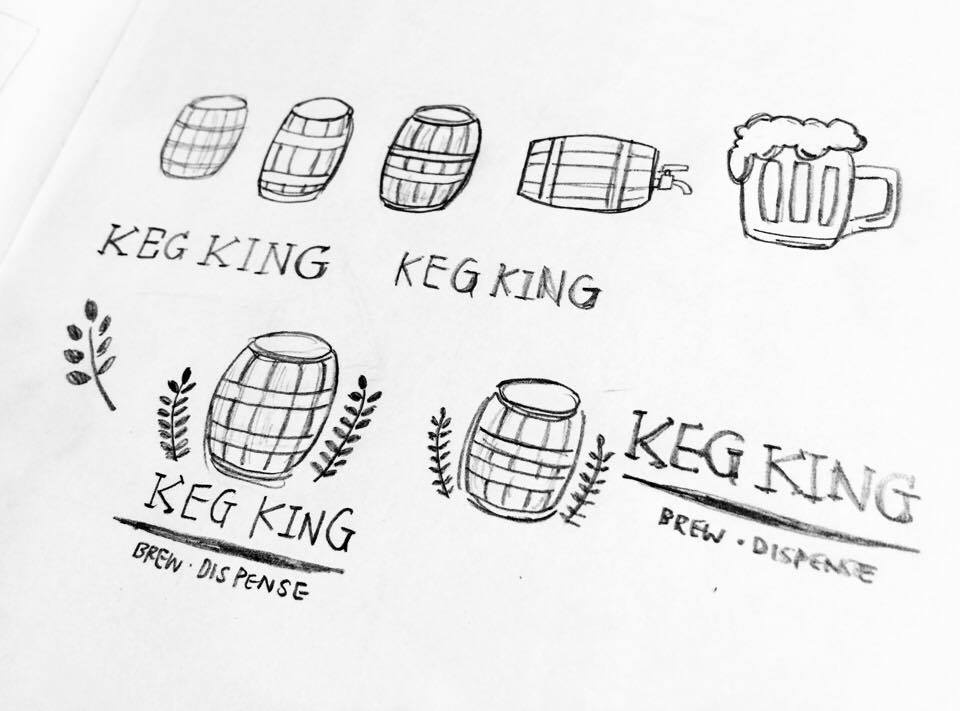 KEG KING
KEG KING
KEG KING
BREW · DISPENSE
KEG KING
BREW · DISPENSE